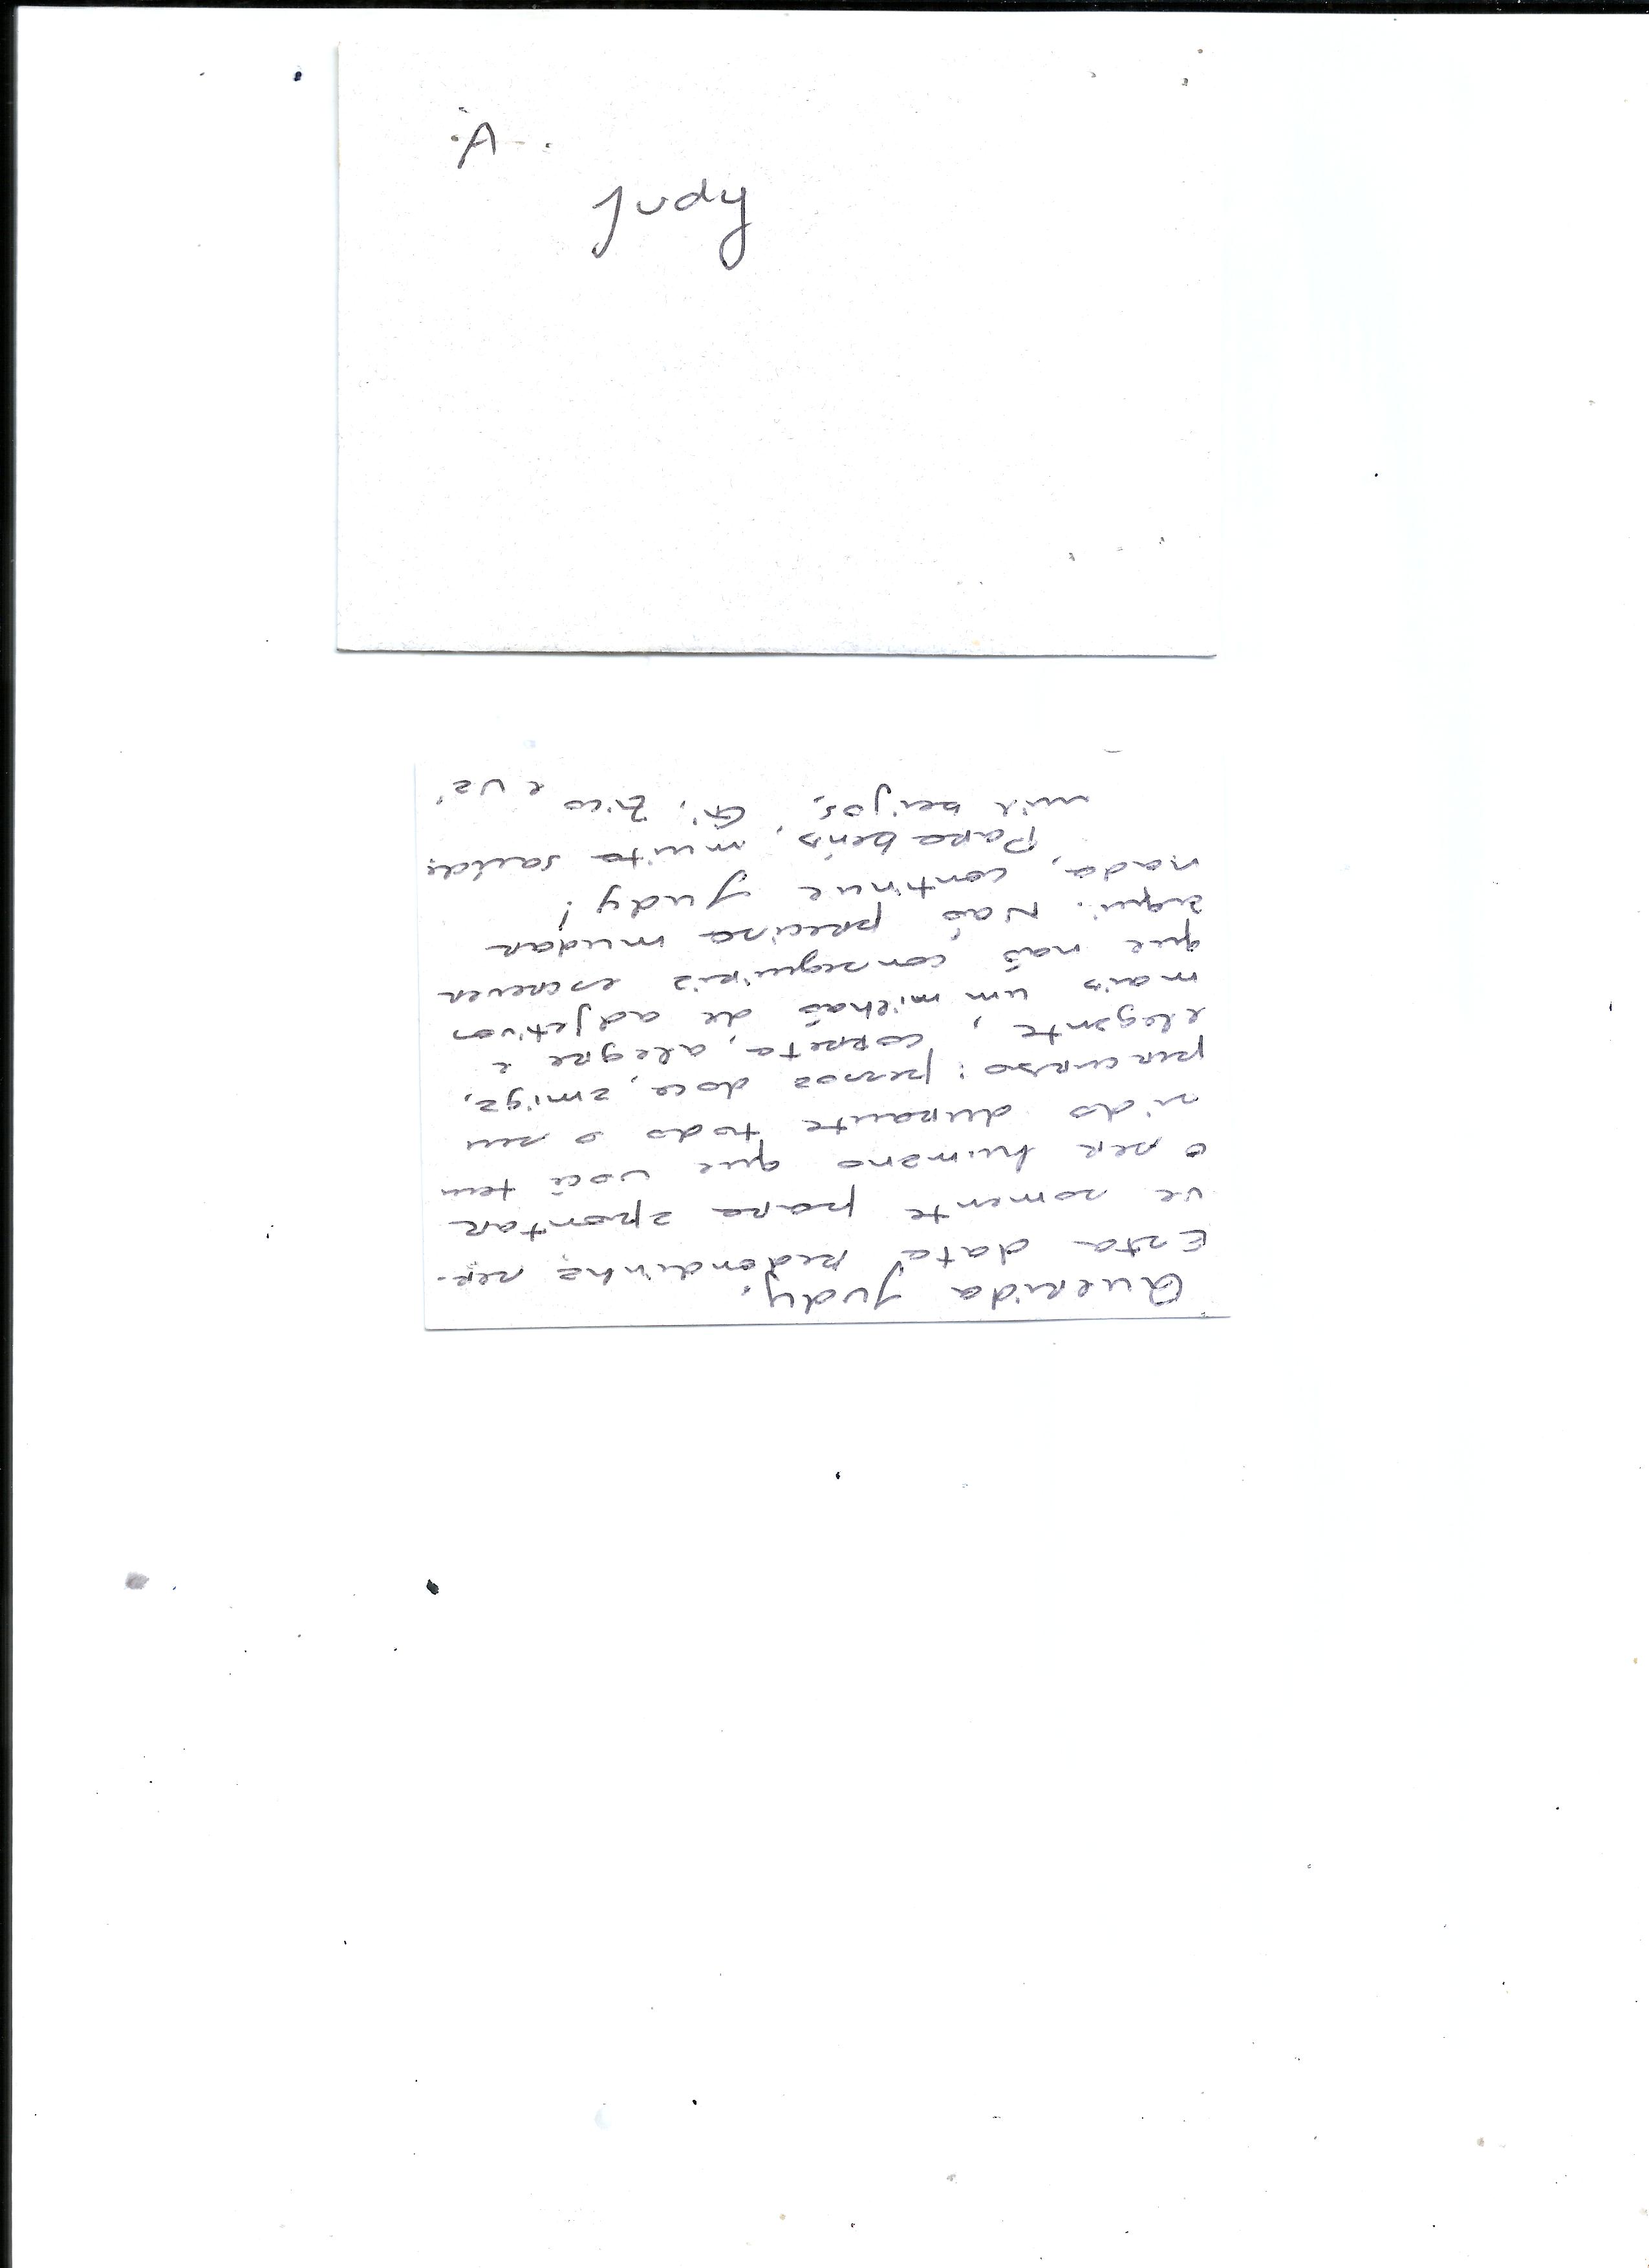 À
Judy
Querida Judy,
Esta data redondinha ser-
ve somente para apontar
o ser humano que você tem
sido durante todo o seu
percurso: pessoa doce, amiga,
elegante, correta, alegre e
mais um milhão de adjetivos
que não conseguiria escrever
aqui. Não precisa mudar
nada, continue Judy!
Parabéns, muita saúde
mil beijos, Gi, Zico e